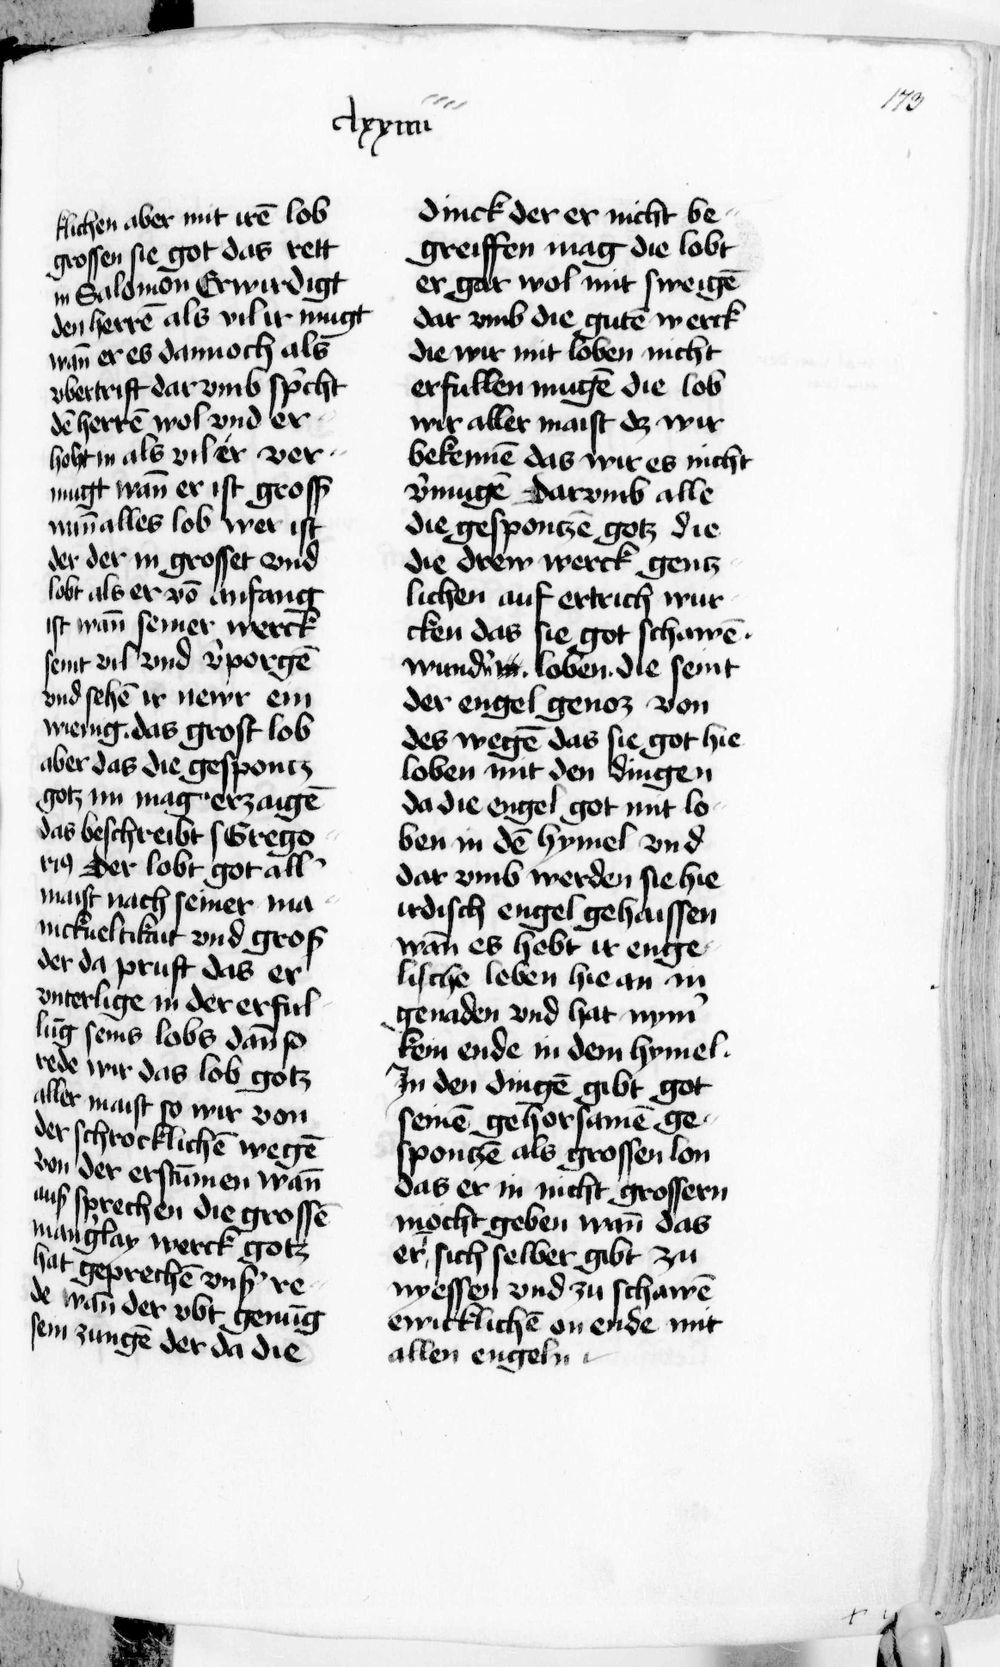 173
clxxiiii
klichen aber mit irē lob
grossen sie got das rett
in Salomon Erwirdigt
den herrē als vil ir mugt
wan̄ er es dannoch als
vbertrift dar vmb sp̄cht
dē herrē wol vnd er
hoht in als vil ir ver
mugt wan̄ er ist gross
wan̄ alles lob wer ist
der der in grosset vnd
lobt als er vō anfang
ist wan̄ seiner werck
seint vil vnd v̄porgē
vnd sehē ir newr ein
wienig. das grost lob
aber das die gespontz
gotz im mag erzaigē
das beschreibt s Grego
riꝰ Der lobt got all
maist nach seiner ma
nickueltikait vnd gross
der da pruft das er
vnterlige in der erful
lūg seins lobs dan̄ so
rede wir das lob gotz
aller maist so wir von
der schrocklichē wegē
von der erstūmen wan̄
auss sprechen die grossē
manḡlay werck gotz
hat geprechē vnsꝰ re
de wan̄ der vbt genūg
sein zungē der da die
dinck der er nicht be
greiffen mag die lobt
er gar wol mit sweigē
dar vmb die gutē werck
die wir mit loben nicht
erfullen mugē die lob
wir aller maist dz wir
bekennē das wir es nicht
v̄mugē Darvmb alle
die gespontzē gotz die
die drew werck gentz
lichen auf ertrich wur
cken das sie got schawē.
wund̄n. loben. die seint
der engel genoz von
des wegē das sie got hie
loben mit den dingen
da die engel got mit lo
ben in dē hymel vnd
dar vmb werden sie hie
irdisch engel gehaissen
wan̄ es hebt ir enge
lische leben hie an in
genaden vnd hat nym̄
kein ende in dem hymel.
In den dingē gibt got
seinē gehorsamē ge
spontzē als grossen lon
das er in nicht grossern
mocht geben wan̄ das
er sich selber gibt zu
nyessen vnd zu schawē
ewicklichē on ende mit
allen engeln